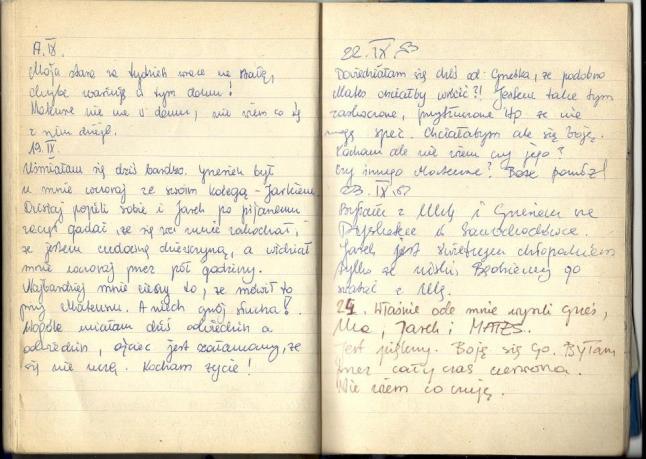 17.IX.
Moja stara za tydzień wraca na stałe,
chyba zwariuję w tym domu!
Mateusza nie ma w domu, nie wiem co się
z nim dzieje.
19.IX.
Uśmiałam się dziś bardzo. Gnesiek był
u mnie wczoraj ze swoim kolegą - Jarkiem.
Dzisiaj popili sobie i Jarek po pijanemu
zaczął gadać, że się we mnie zakochał,
że jestem cudowną dziewczyną, a widział
mnie wczoraj przez pół godziny.
Najbardziej mnie cieszy to, że mówił to
przy Mateuszu. A niech gnój słucha!
miałam dziś odwiedzin a
odwiedzin, ojciec jest załamany, że
się nie uczę. Kocham życie!
22.IX.
Dowiedziałam się dziś od Gneśka, że podobno
Mates chciałby wrócić?! Jestem takie tym
zaskoczona, że nie
mogę spać. Chciałabym ale się boję.
Kocham ale nie wiem czy jego?
Czy innego Mateusza? Boże pomóż!
23.IX.
Byłam z Ulą i Gnesiem na
w Samochodówce.
Jarek jest świetnym chłopakiem
tylko że niski. Będziemy go
z Ulą.
24. Właśnie ode mnie wyszli Gneś,
Ula, Jarek i MATES.
Jest piękny. Boję się Go. Byłam
przez cały czas czerwona.
Nie wiem co czuję.